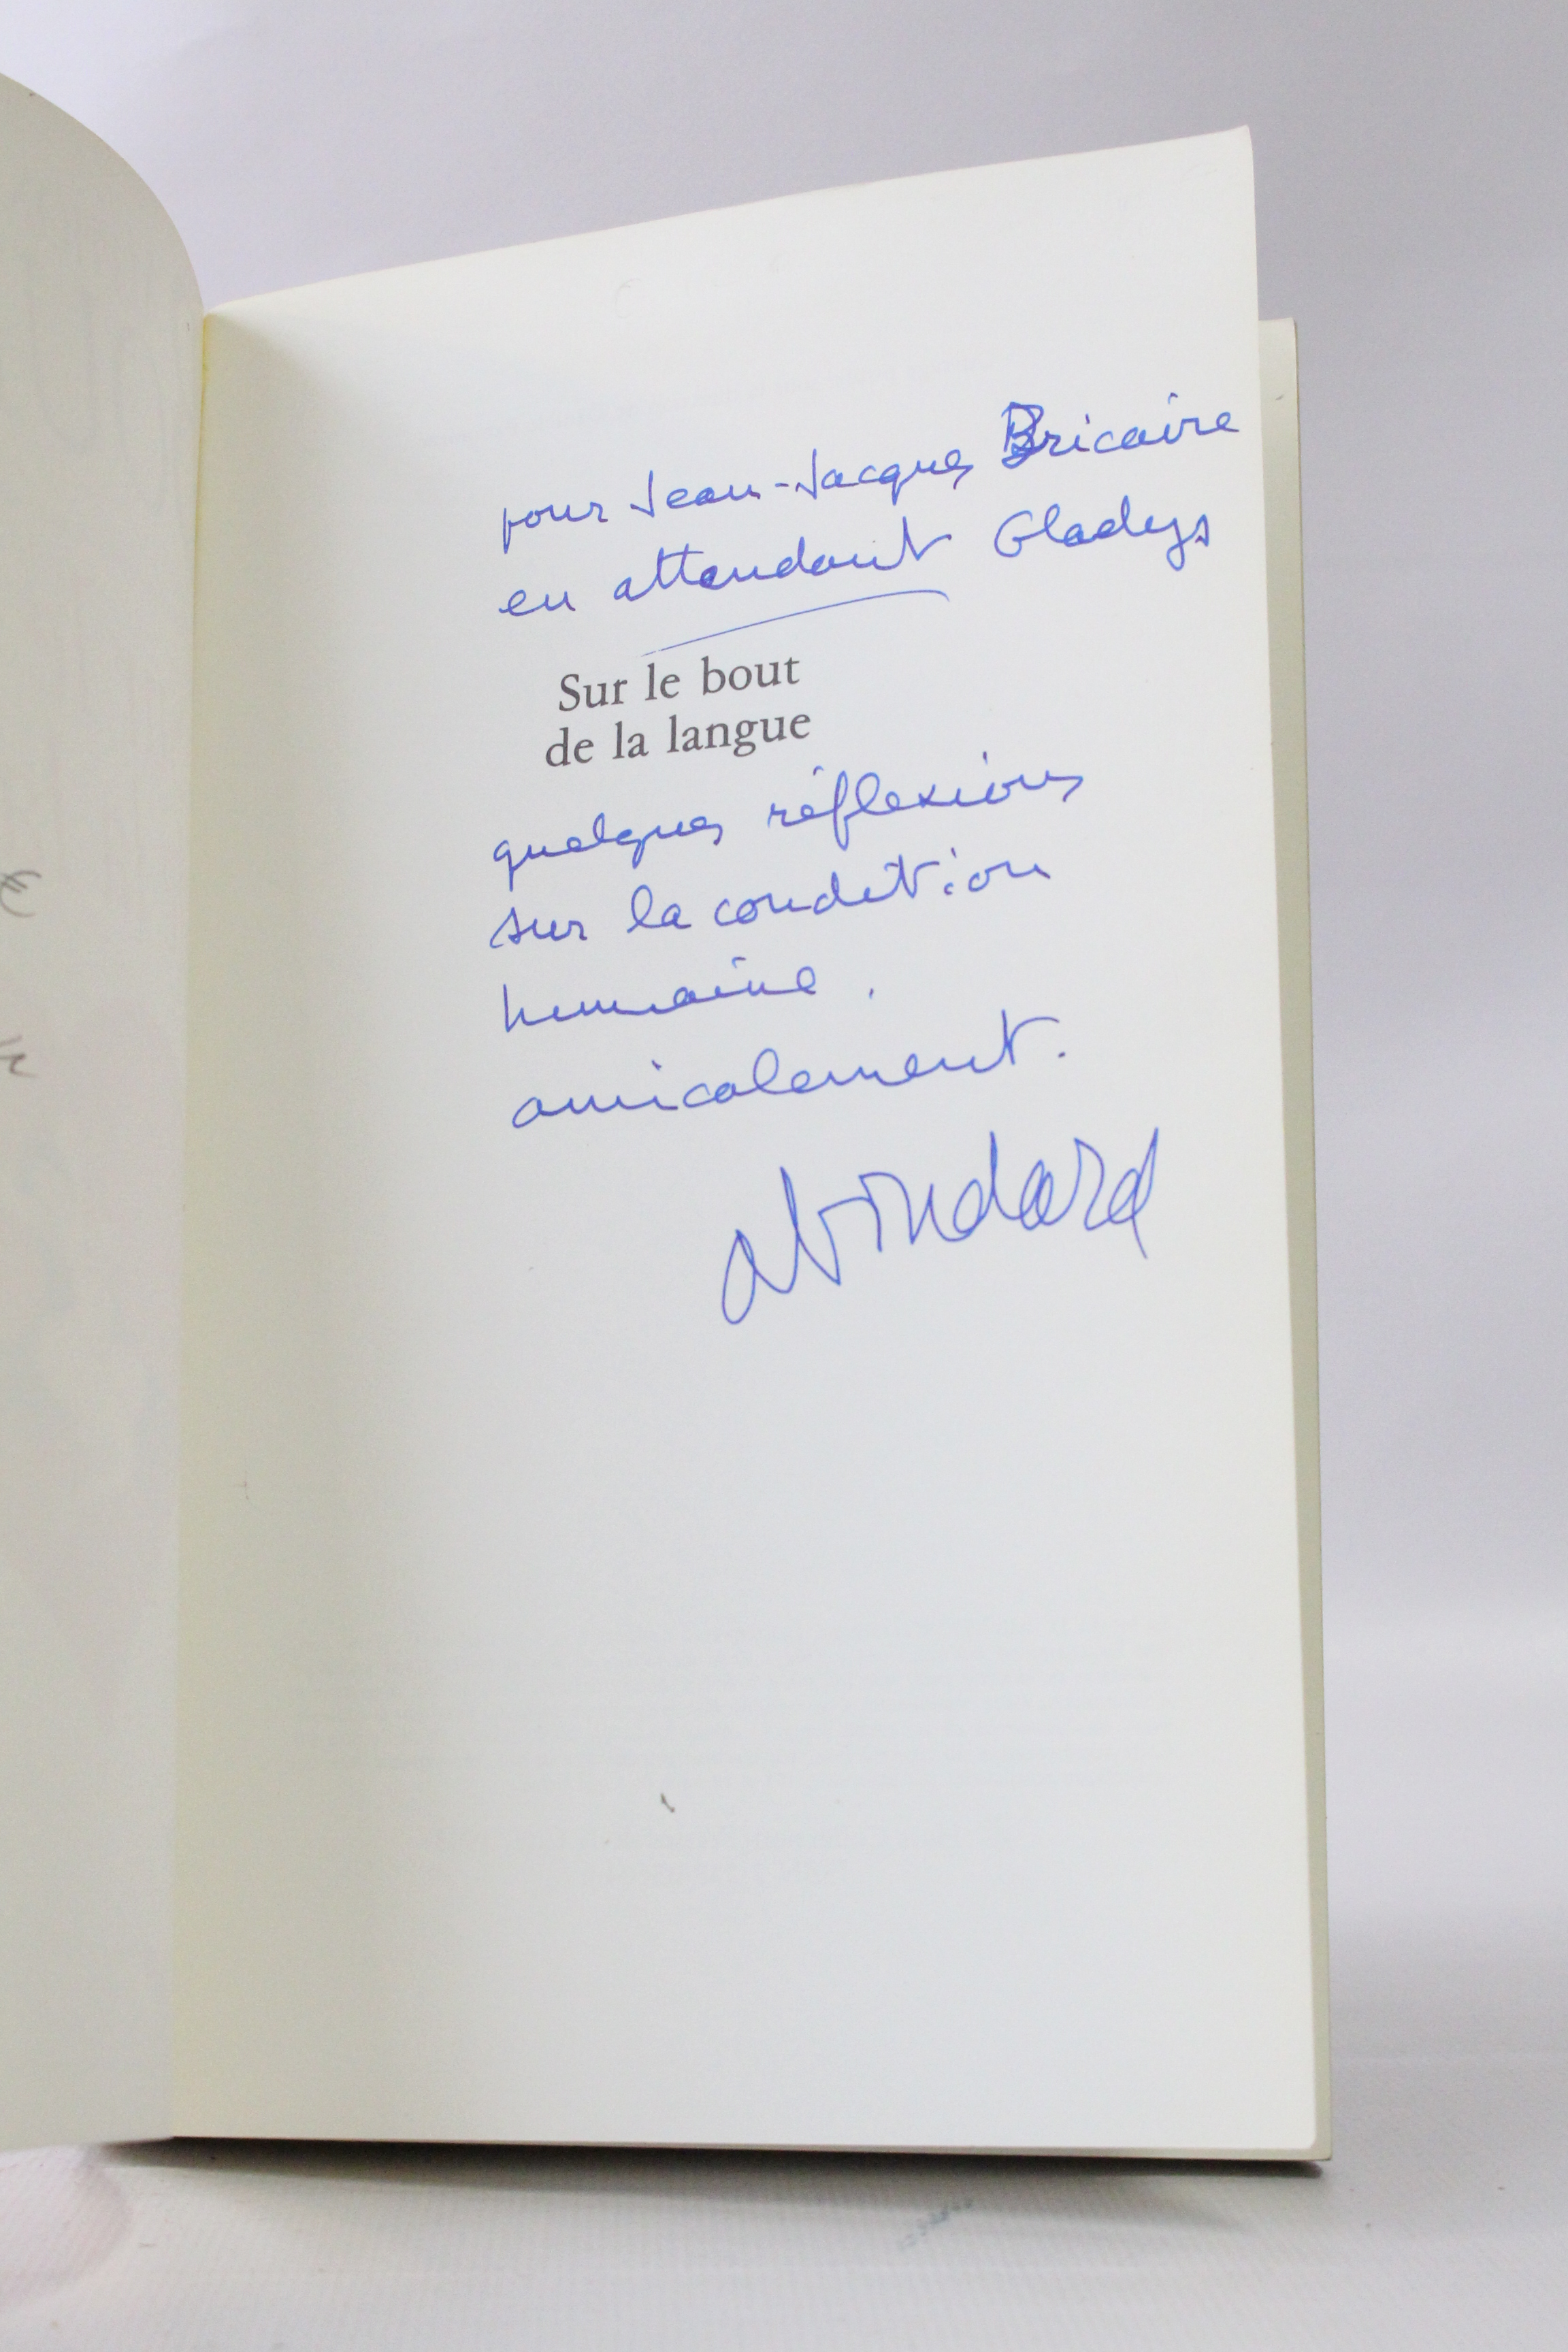 pour Jean-Jacques Bricaire
en attendant Gladys
Sur le bout
de la langue
quelques réflexions
sur la condition
humaine.
amicalement.
€